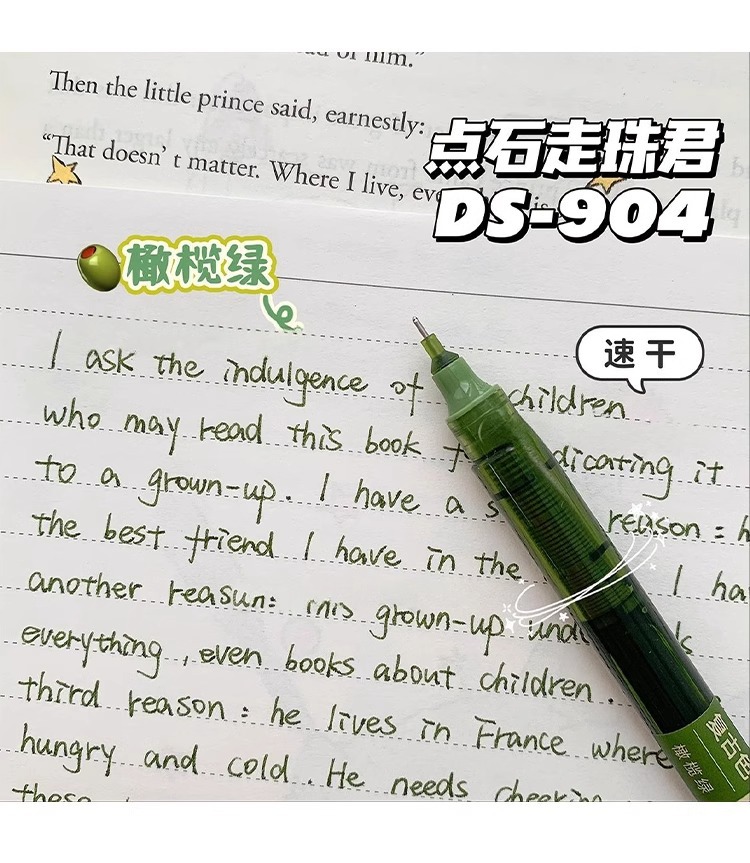 of him.”
Then the little prince said, earnestly:
“That doesn’ t matter. Where I live, is
点石走珠君
DS-904
橄榄绿
速干
I ask the indulgence of children
who may read this book dicating it
to a grown-up. I have a s reason : h
the best friend I have in the I ha
another reason: this grown-up und
everything , even books about children .
third reason : he lives in France where
hungry and cold . He needs cheering
these
复古色
橄榄绿